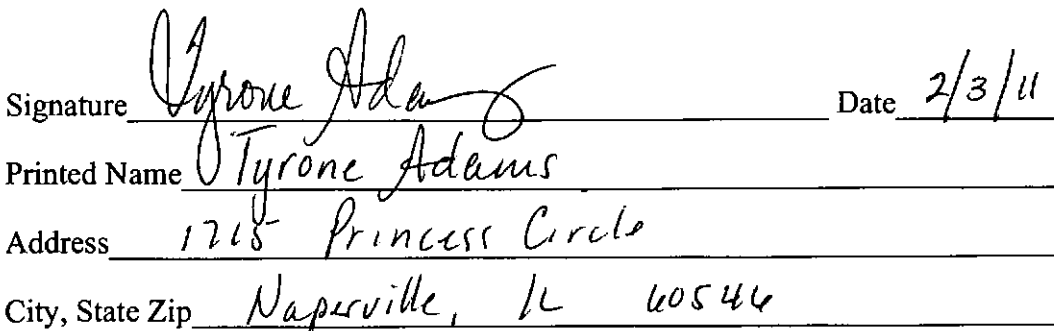 Signature Tyrone Adams Date 2/3/11
Printed Name Tyrone Adams
Address 1715 Princess Circle
City, State Zip Naperville, IL 60546